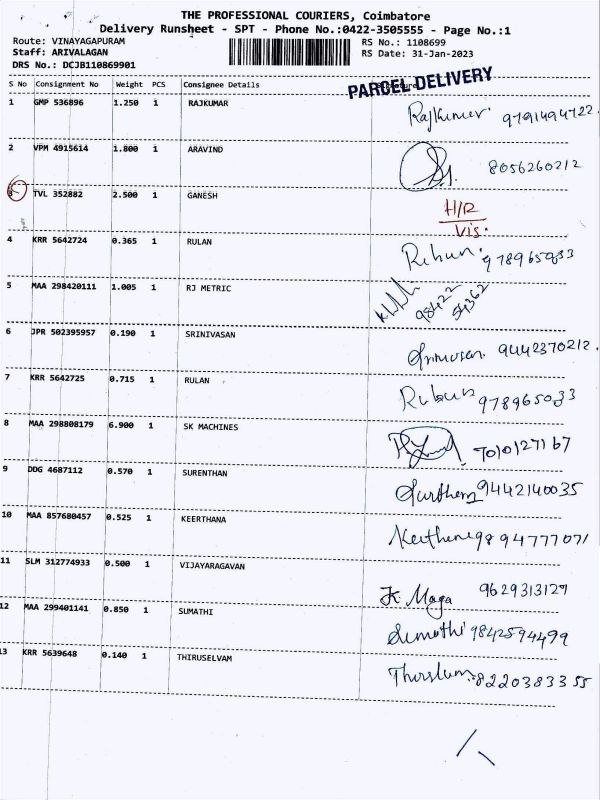 THE PROFESSIONAL COURIERS, Coimbatore
Delivery Runsheet - SPT - Phone No.:0422-3505555 - Page No.:1
Route: VINAYAGAPURAM RS No.: 1108699
Staff: ARIVALAGAN RS Date: 31-Jan-2023
DRS No.: DCJB110869901
PARCEL DELIVERY
S No Consignment No Weight PCS Consignee Details
1 GMP 536896 1.250 1 RAJKUMAR Rajkumar 9791494722.
2 VPM 4915614 1.800 1 ARAVIND 8056260212
3 TVL 352882 2.500 1 GANESH H/R
Vis.
4 KRR 5642724 0.365 1 RULAN 9789650
5 MAA 298420111 1.005 1 RJ METRIC 98422
54362
6 JPR 502395957 0.190 1 SRINIVASAN Srinivasan. 9442370212.
7 KRR 5642725 0.715 1 RULAN 978965033
8 MAA 298808179 6.900 1 SK MACHINES 7010127167
9 DDG 4687112 0.570 1 SURENTHAN 9442140035
10 MAA 857680457 0.525 1 KEERTHANA Keerthana 9894777071
11 SLM 312774933 0.500 1 VIJAYARAGAVAN K. Maga 9629313127
12 MAA 299401141 0.850 1 SUMATHI Sumathi 9842594499
13 KRR 5639648 0.140 1 THIRUSELVAM 8220383355